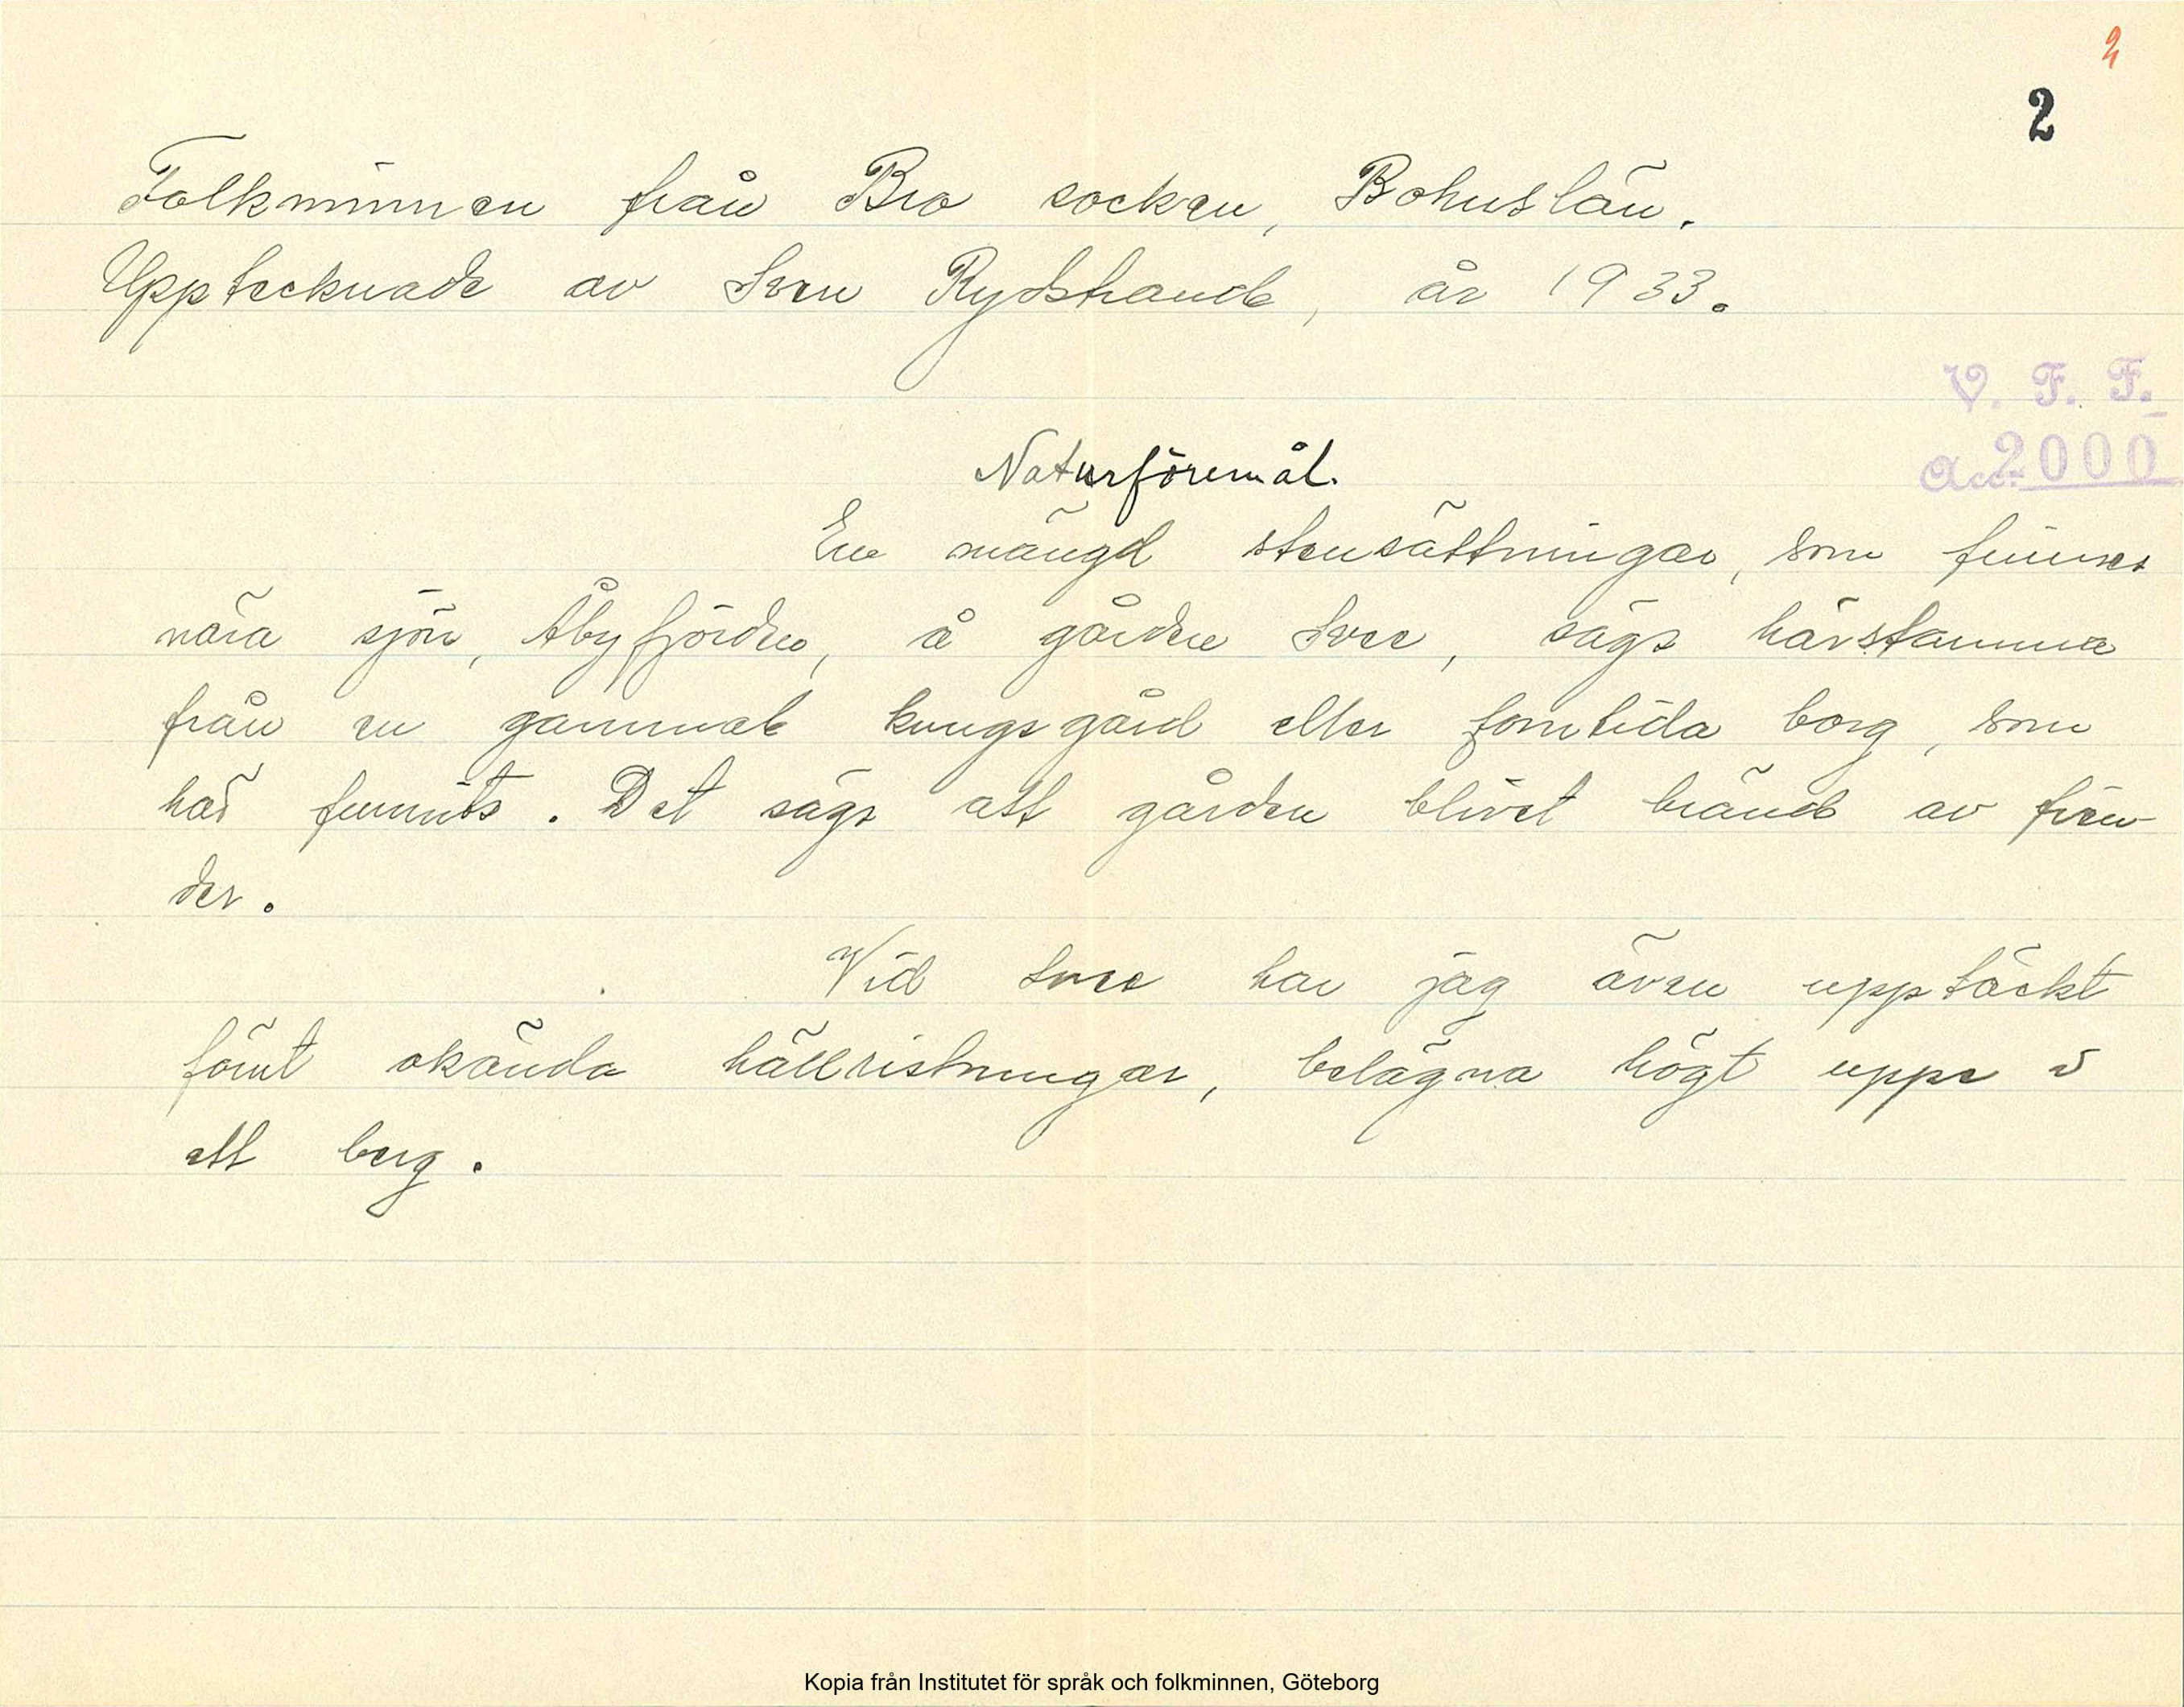 2
2
Folkminnen från Bro socken, Bohuslän.
Upptecknade av Sven Rydstrand, år 1933.
V. F. F.
Acc: 2000
Naturföremål.
En mängd stensättningar, som finnes
nära sjön, Åbyfjorden, å gården Svee, sägs härstamma
från en gammal kungsgård eller forntida borg, som
här funnits. Det sägs att gården blivet bränd av fien-
der.
Vid Svee har jag även upptäckt
förut okända hällristningar, belägna högt uppe i
ett berg.
Kopia från Institutet för språk och folkminnen, Göteborg